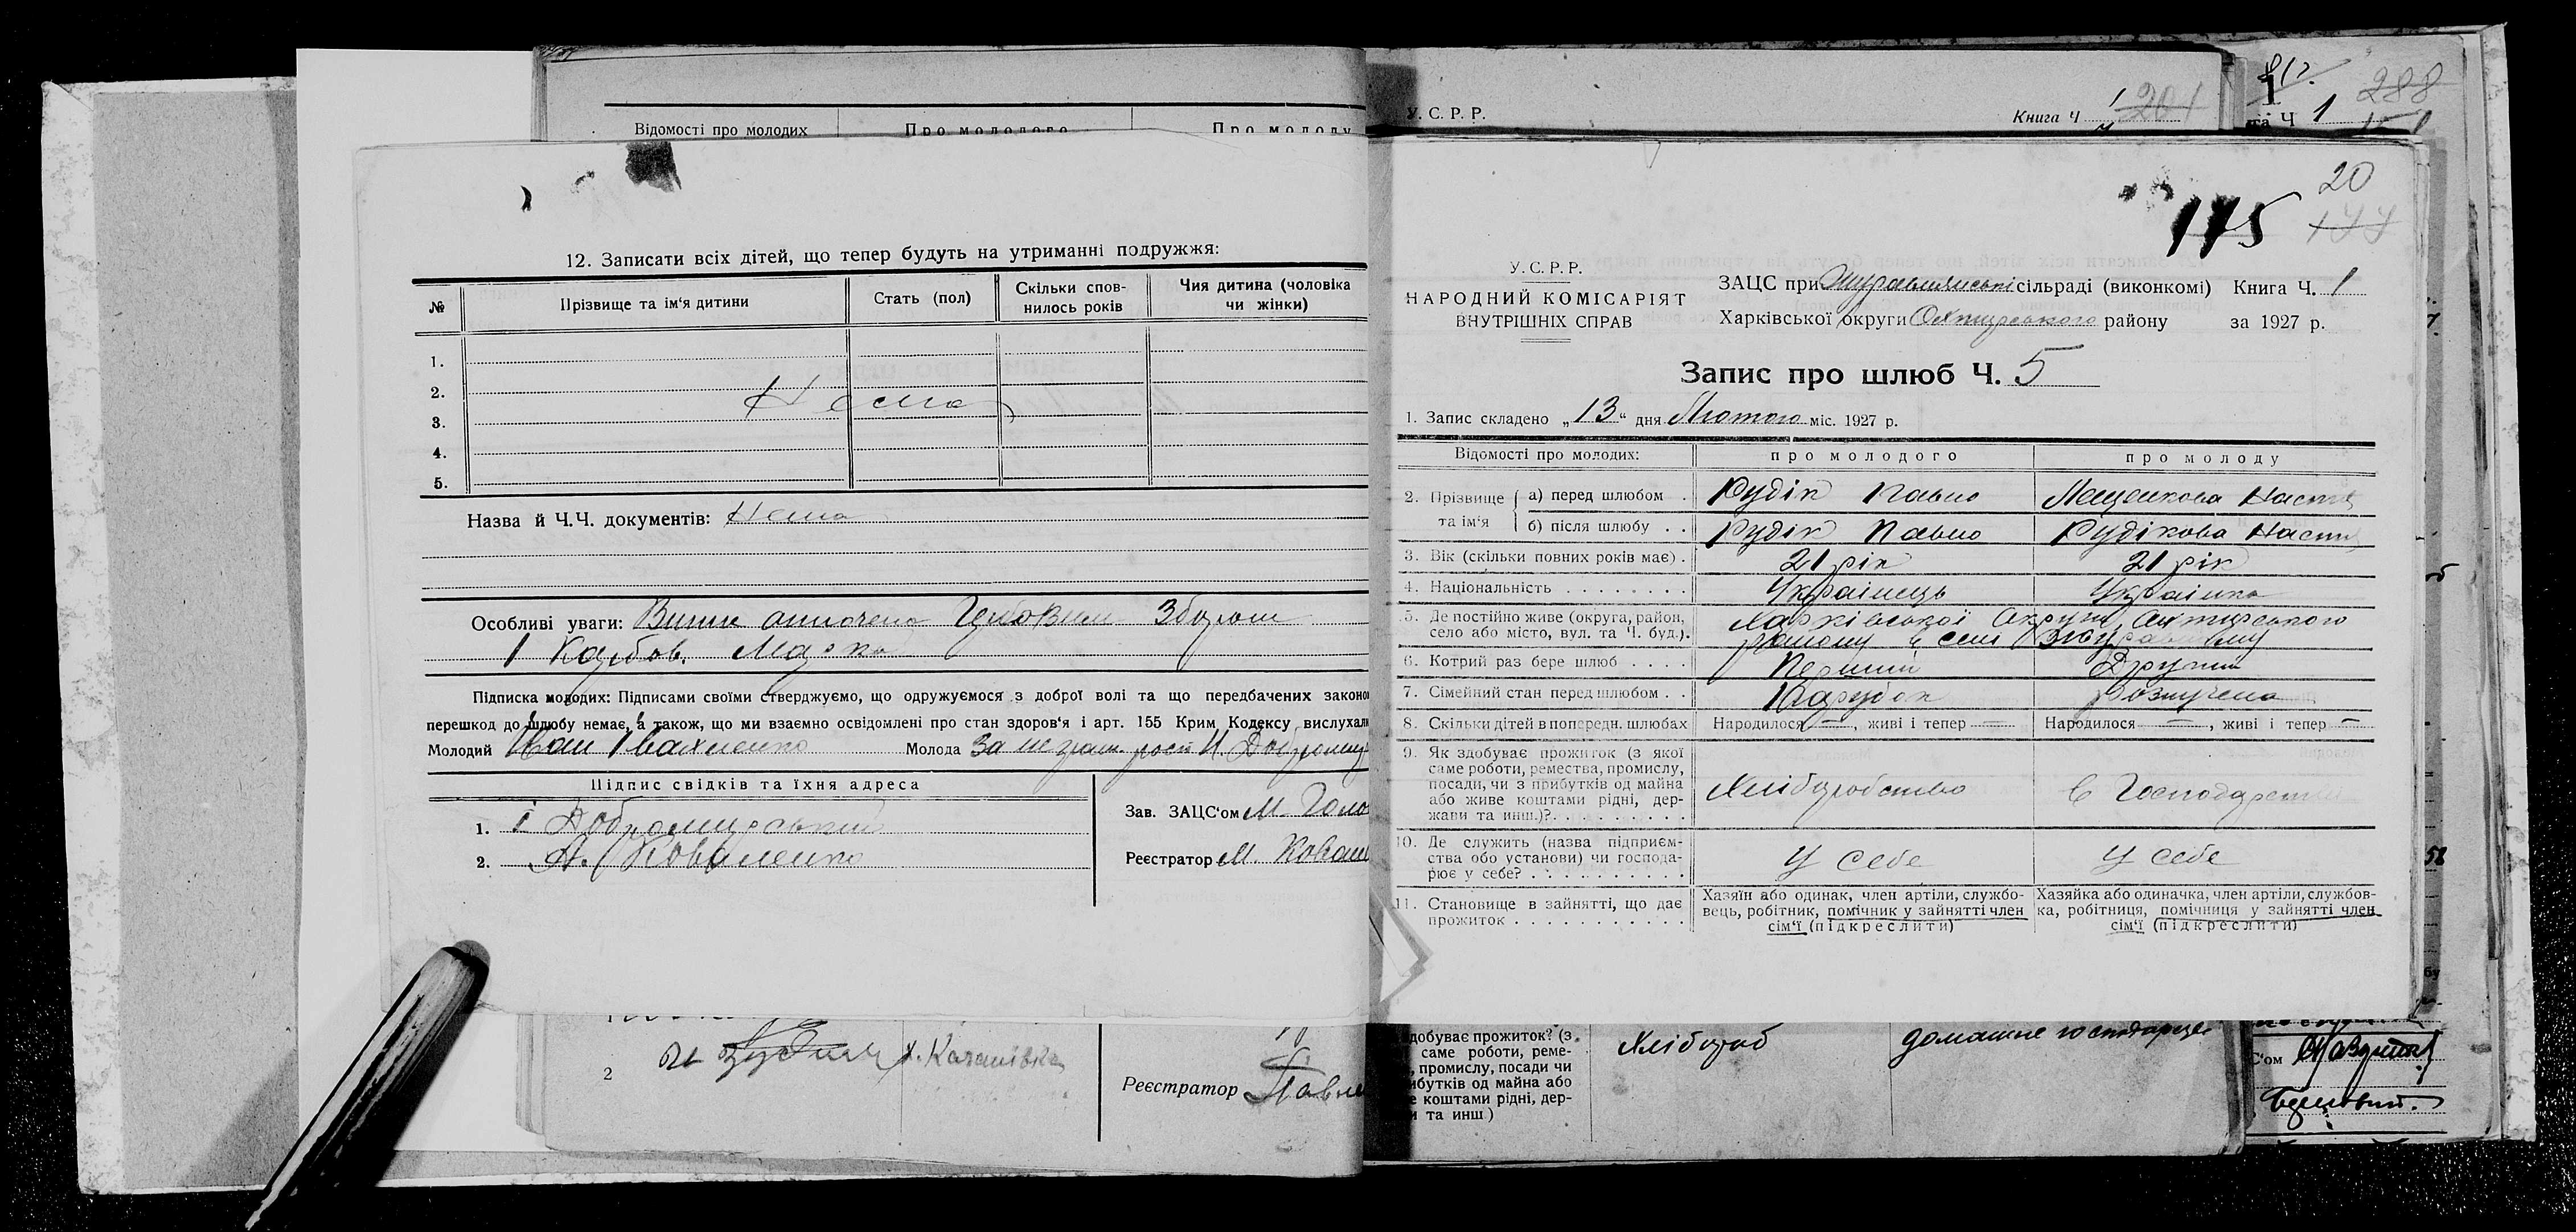 Відомості про молодих Про молодого Про молоду
12. Записати всіх дітей, що тепер будуть на утриманні подружжя:
№ Прізвище та ім'я дитини Стать (пол) Скільки спов- нилось років Чия дитина (чоловіка чи жінки)
1.
2.
Нема
3.
4.
5.
Назва й Ч.Ч. документів: Нема
Особливі уваги: Збором
1 Карбов. Марка
Підписка молодих: Підписами своїми стверджуємо, що одружуємося з доброї волі та що передбачених законо
перешкод до шлюбу немає, а також, що ми взаємно освідомлені про стан здоров'я і арт. 155 Крим Кодексу вислухали
Молодий Іван Івахненко Молода За
Підпис свідків та їхня адреса
1. і Добромирський
2. А. Коваленко
Зав. ЗАЦС'ом М. Голо
Реєстратор М. Ковал
2 х. Качанівка
Реєстратор Павле
У. С. Р. Р.
Книга Ч 1 201
та Ч 1 288
20
175 177
У. С. Р. Р.
НАРОДНИЙ КОМІСАРІЯТ
ВНУТРІШНІХ СПРАВ
ЗАЦС при сільраді (виконкомі) Книга Ч. 1
Харківської округи Охтирського району за 1927 р.
Запис про шлюб Ч. 5
1. Запис складено „13" дня Лютого міс. 1927 р.
Відомості про молодих: про молодого про молоду
2. Прізвище та ім'я а) перед шлюбом . Рудік Павло Лещенкова Настя
б) після шлюбу . . Рудік Павло Рудікова Настя
3. Вік (скільки повних років має) . 21 рік 21 рік
4. Національність . . . . . . . . Українець Українка
5. Де постійно живе (округа, район, Харківської Округи Охтирського
село або місто, вул. та Ч. буд.). району в селі
6. Котрий раз бере шлюб . . . . Перший Другий
7. Сімейний стан перед шлюбом . . Парубок Розлучена
8. Скільки дітей в попередн. шлюбах Народилося —, живі і тепер — Народилося —, живі і тепер —
9. Як здобуває прожиток (з якої
саме роботи, ремества, промислу,
посади, чи з прибутків од майна
або живе коштами рідні, дер-
жави та инш.)?. . . . . . . . . Хліборобство в Господарстві
10. Де служить (назва підприєм-
ства або установи) чи господа-
рює у себе? . . . . . . . . . . У себе У себе
11. Становище в зайнятті, що дає
прожиток . . . . . . . . . . .
Хазяїн або одинак, член артіли, службо-
вець, робітник, помічник у зайнятті член
сім'ї (підкреслити)
Хазяйка або одиначка, член артіли, службов-
ка, робітниця, помічниця у зайнятті член
сім'ї (підкреслити)
добуває прожиток? (з
саме роботи, реме-
, промислу, посади чи
ибутків од майна або
е коштами рідні, дер-
и та инш)
Хлібороб домашне господарце
58
бу
С'ом